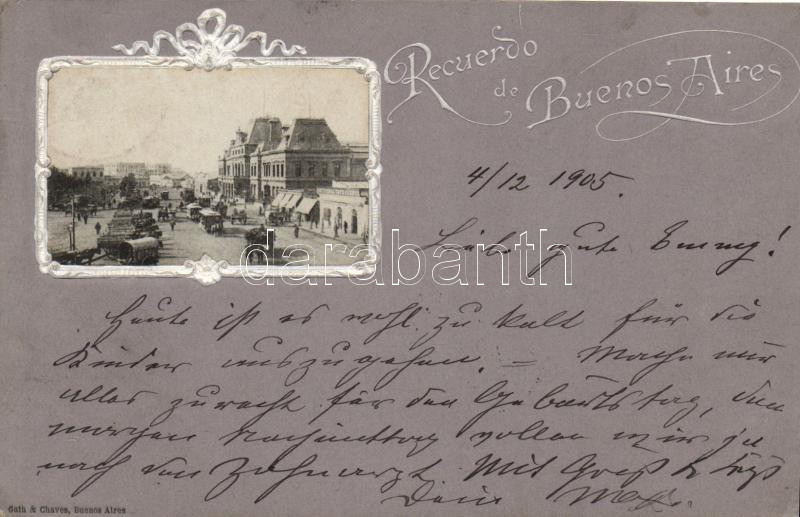 Recuerdo
de
Buenos Aires
4/12 1905.
Liebe gute Emmy!
Heute ist es wohl zu kalt für die
Kinder auszugehen. – Mache nur
alles zurecht für den Geburtstag, denn
morgen Nachmittag wollen wir ja
nach dem Zahnarzt. Mit Gruß & Kuß
Dein Max.
Gath & Chaves, Buenos Aires
darabanth